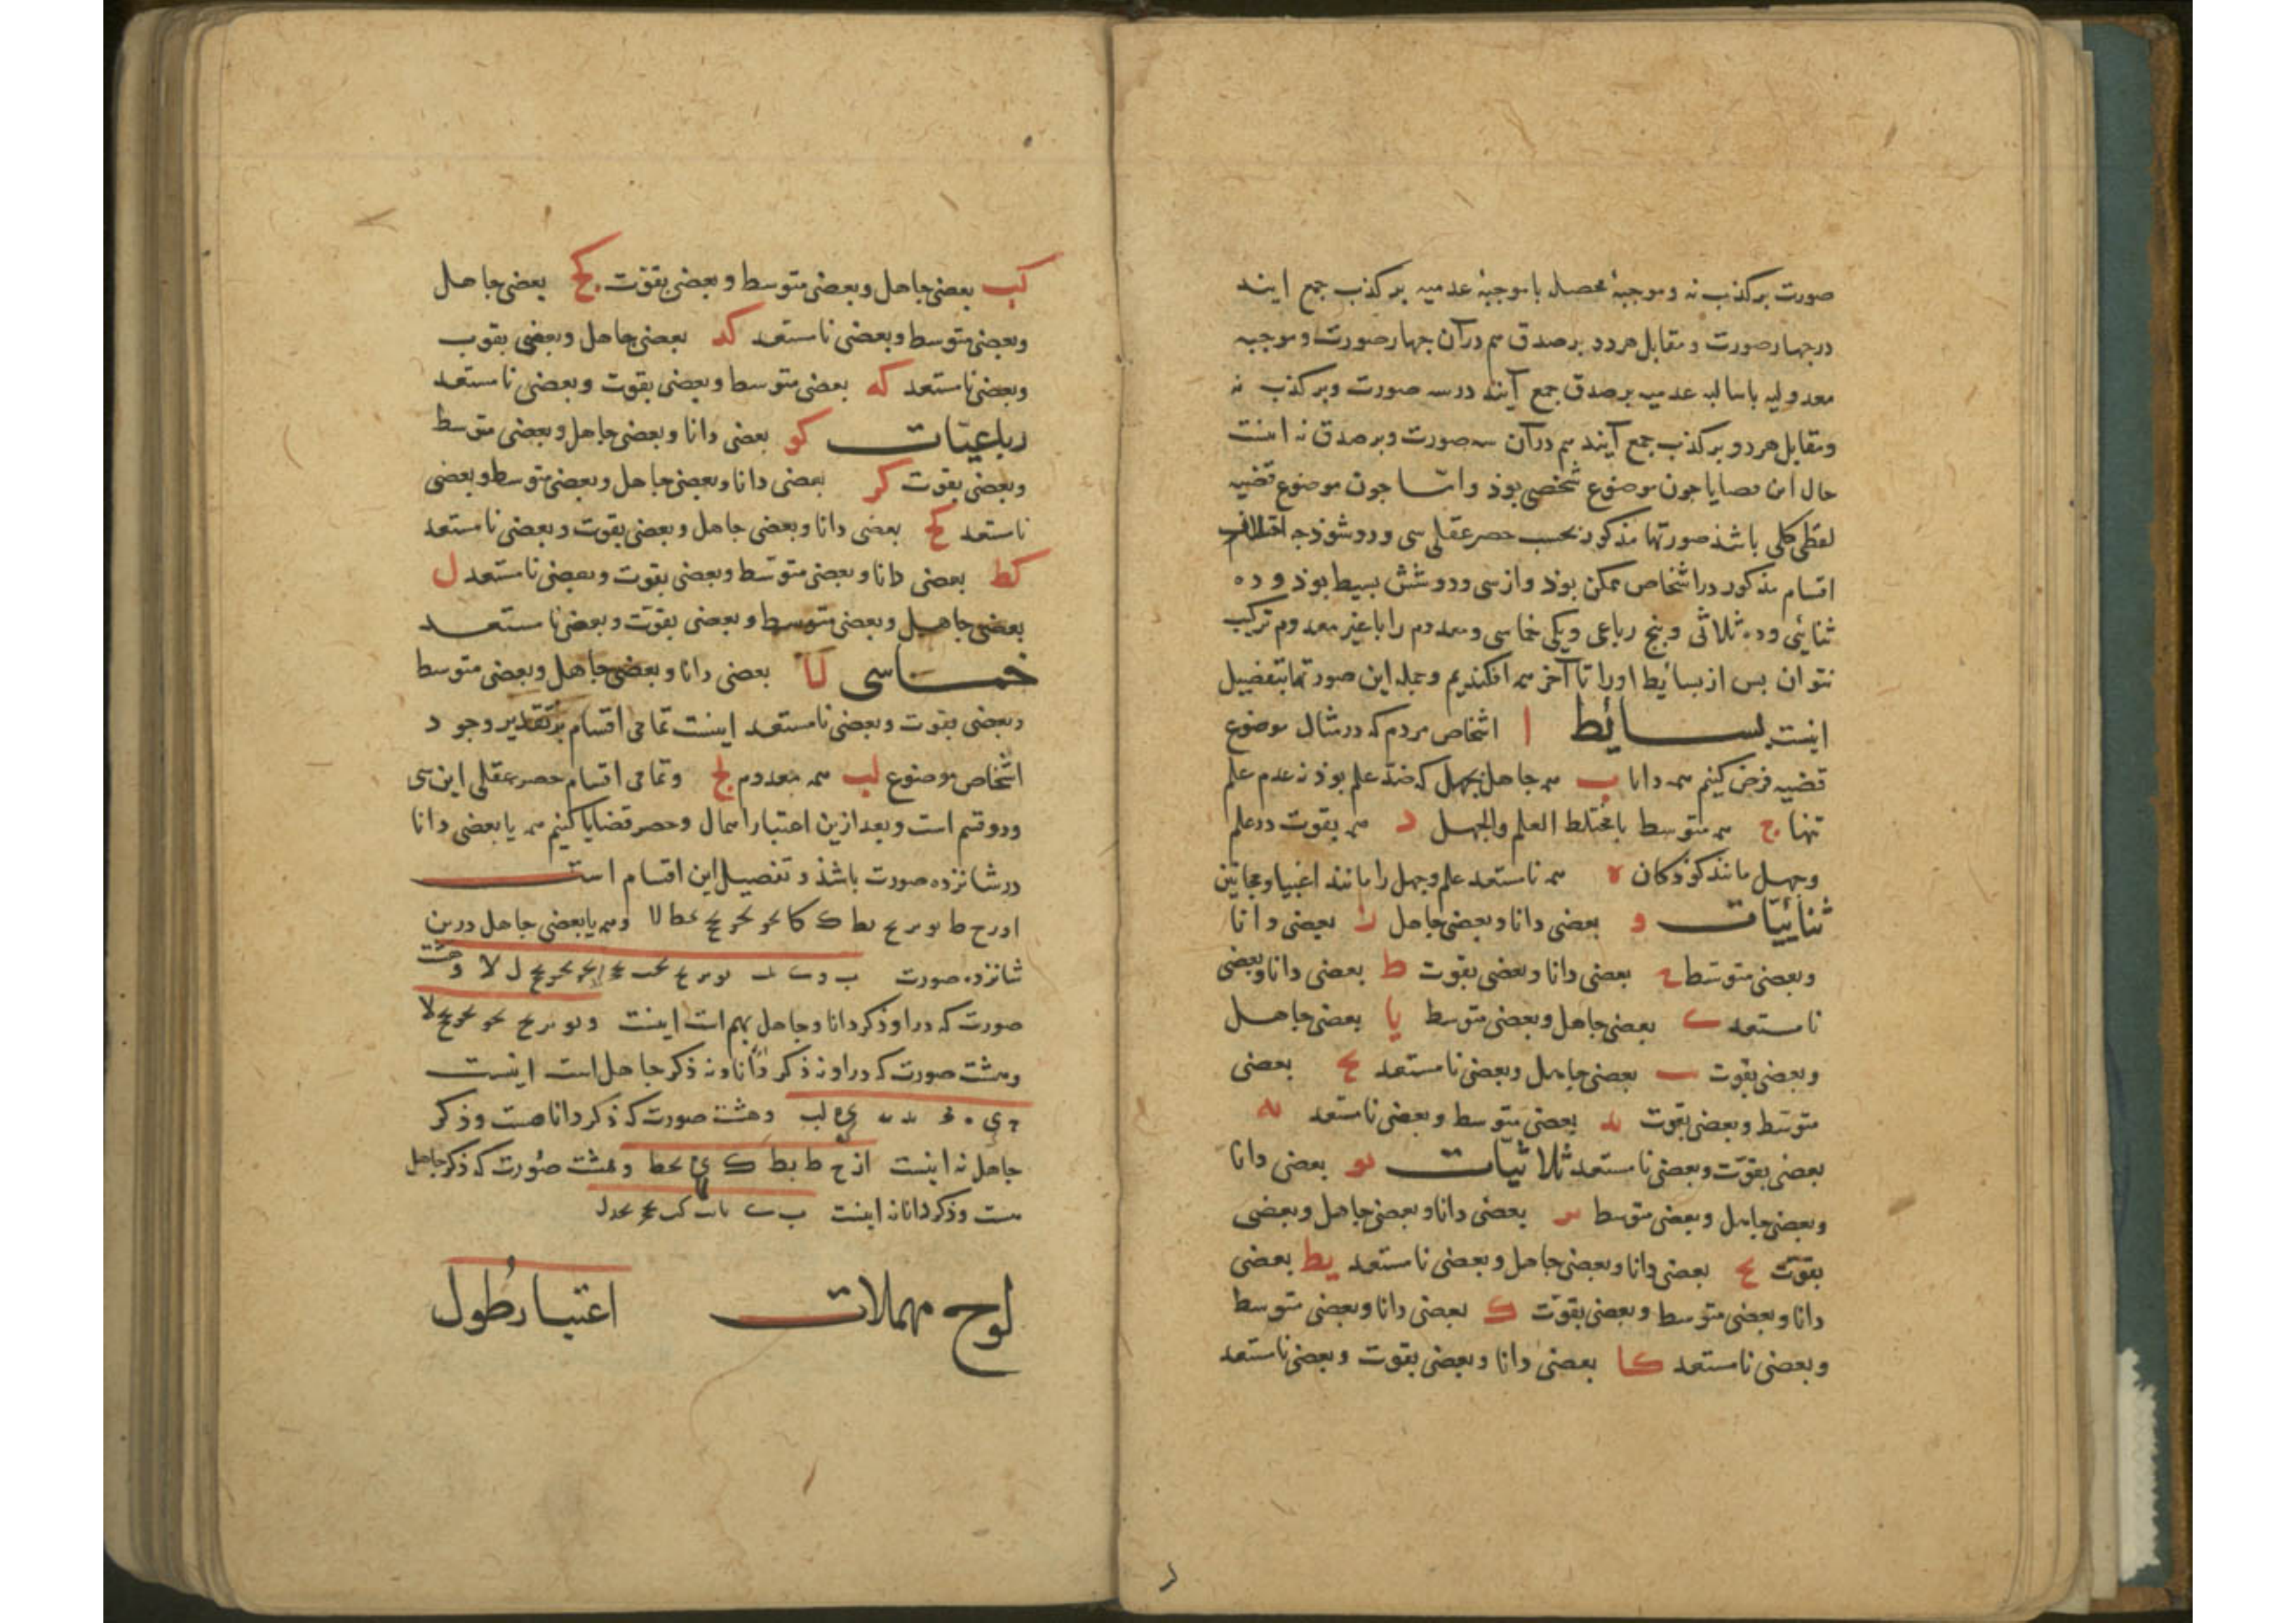 صورت بر کذب نه و موجبهٔ محصل با موجبهٔ عدمیه بر کذب جمع ایند
در چهار صورت و مقابل هر دو بر صدق هم در آن چهار صورت و موجبه
معدولیه با سالبه عدمیه بر صدق جمع آیند در سه صورت و بر کذب نه
و مقابل هر دو بر کذب جمع آیند هم در آن سه صورت و بر صدق نه اینست
حال این قضایا جون موضوع شخصی بوذ و امّا جون موضوع قضیه
لفظی کلی باشذ صورتها مذکور بحسب حصر عقلی سی و دو شوذ جه اختلاف
اقسام مذکور در اشخاص ممکن بوذ و از سی و دو شش بسیط بوذ و ده
ثنائی و ده ثلاثی و پنج رباعی و یکی خماسی و معدوم را با غیر معدوم ترکیب
نتوان بس از بسائط او را تا آخر همه افکندیم و جمله این صورتها بتفضیل
اینست بسائط ا اشخاص مردم که در مثال موضوع
قضیه فرض کنیم همه دانا ب همه جاهل بجهل که ضد علم بوذ نه عدم علم
تنها ج همه متوسط یا مختلط العلم والجهل د همه بقوت در علم
و جهل مانند کوذکان ه همه نامستعد علم و جهل را مانند اغبیا و مجانین
ثنائیّات و بعضی دانا و بعضی جاهل ز بعضی دانا
و بعضی متوسّط ح بعضی دانا و بعضی بقوت ط بعضی دانا و بعضی
نامستعد ی بعضی جاهل و بعضی متوسط یا بعضی جاهل
و بعضی بقوت یب بعضی جاهل و بعضی نامستعد یج بعضی
متوسّط و بعضی بقوت ید بعضی متوسط و بعضی نامستعد یه
بعضی بقوّت و بعضی نامستعد ثلاثیّات یو بعضی دانا
و بعضی جاهل و بعضی متوسط یز بعضی دانا و بعضی جاهل و بعضی
بقوّت یح بعضی دانا و بعضی جاهل و بعضی نامستعد یط بعضی
دانا و بعضی متوسط و بعضی بقوّت ک بعضی دانا و بعضی متوسط
و بعضی نامستعد کا بعضی دانا و بعضی بقوت و بعضی نامستعد
کب بعضی جاهل و بعضی متوسط و بعضی بقوّت کج بعضی جاهل
و بعضی متوسط و بعضی نامستعد کد بعضی جاهل و بعضی بقوت
و بعضی نامستعد که بعضی متوسط و بعضی بقوت و بعضی نامستعد
رباعیّات کو بعضی دانا و بعضی جاهل و بعضی متوسط
و بعضی بقوت کز بعضی دانا و بعضی جاهل و بعضی متوسط و بعضی
نامستعد کح بعضی دانا و بعضی جاهل و بعضی بقوت و بعضی نامستعد
کط بعضی دانا و بعضی متوسّط و بعضی بقوت و بعضی نامستعد ل
بعضی جاهل و بعضی متوسط و بعضی بقوّت و بعضی نامستعد
خماسی لا بعضی دانا و بعضی جاهل و بعضی متوسط
و بعضی بقوت و بعضی نامستعد اینست تمامی اقسام بر تقدیر وجود
اشخاص موضوع لب همه معدوم لج و تمامی اقسام حصر عقلی این سی
و دو قسم است و بعد ازین اعتبار اهمال و حصر قضایا کنیم همه یا بعضی دانا
در شانزده صورت باشذ و تفصیل این اقسام است
و همه یا بعضی جاهل درین
شانزده صورت و هشت
صورت که در او ذکر دانا و جاهل بهم است اینست
و هشت صورت که در او نه ذکر دانا و نه ذکر جاهل است اینست
و هشت صورت که ذکر دانا هست و ذکر
جاهل نه اینست و هشت صورت که ذکر جاهل
هست و ذکر دانا نه اینست
لوح مهملات اعتبار طول